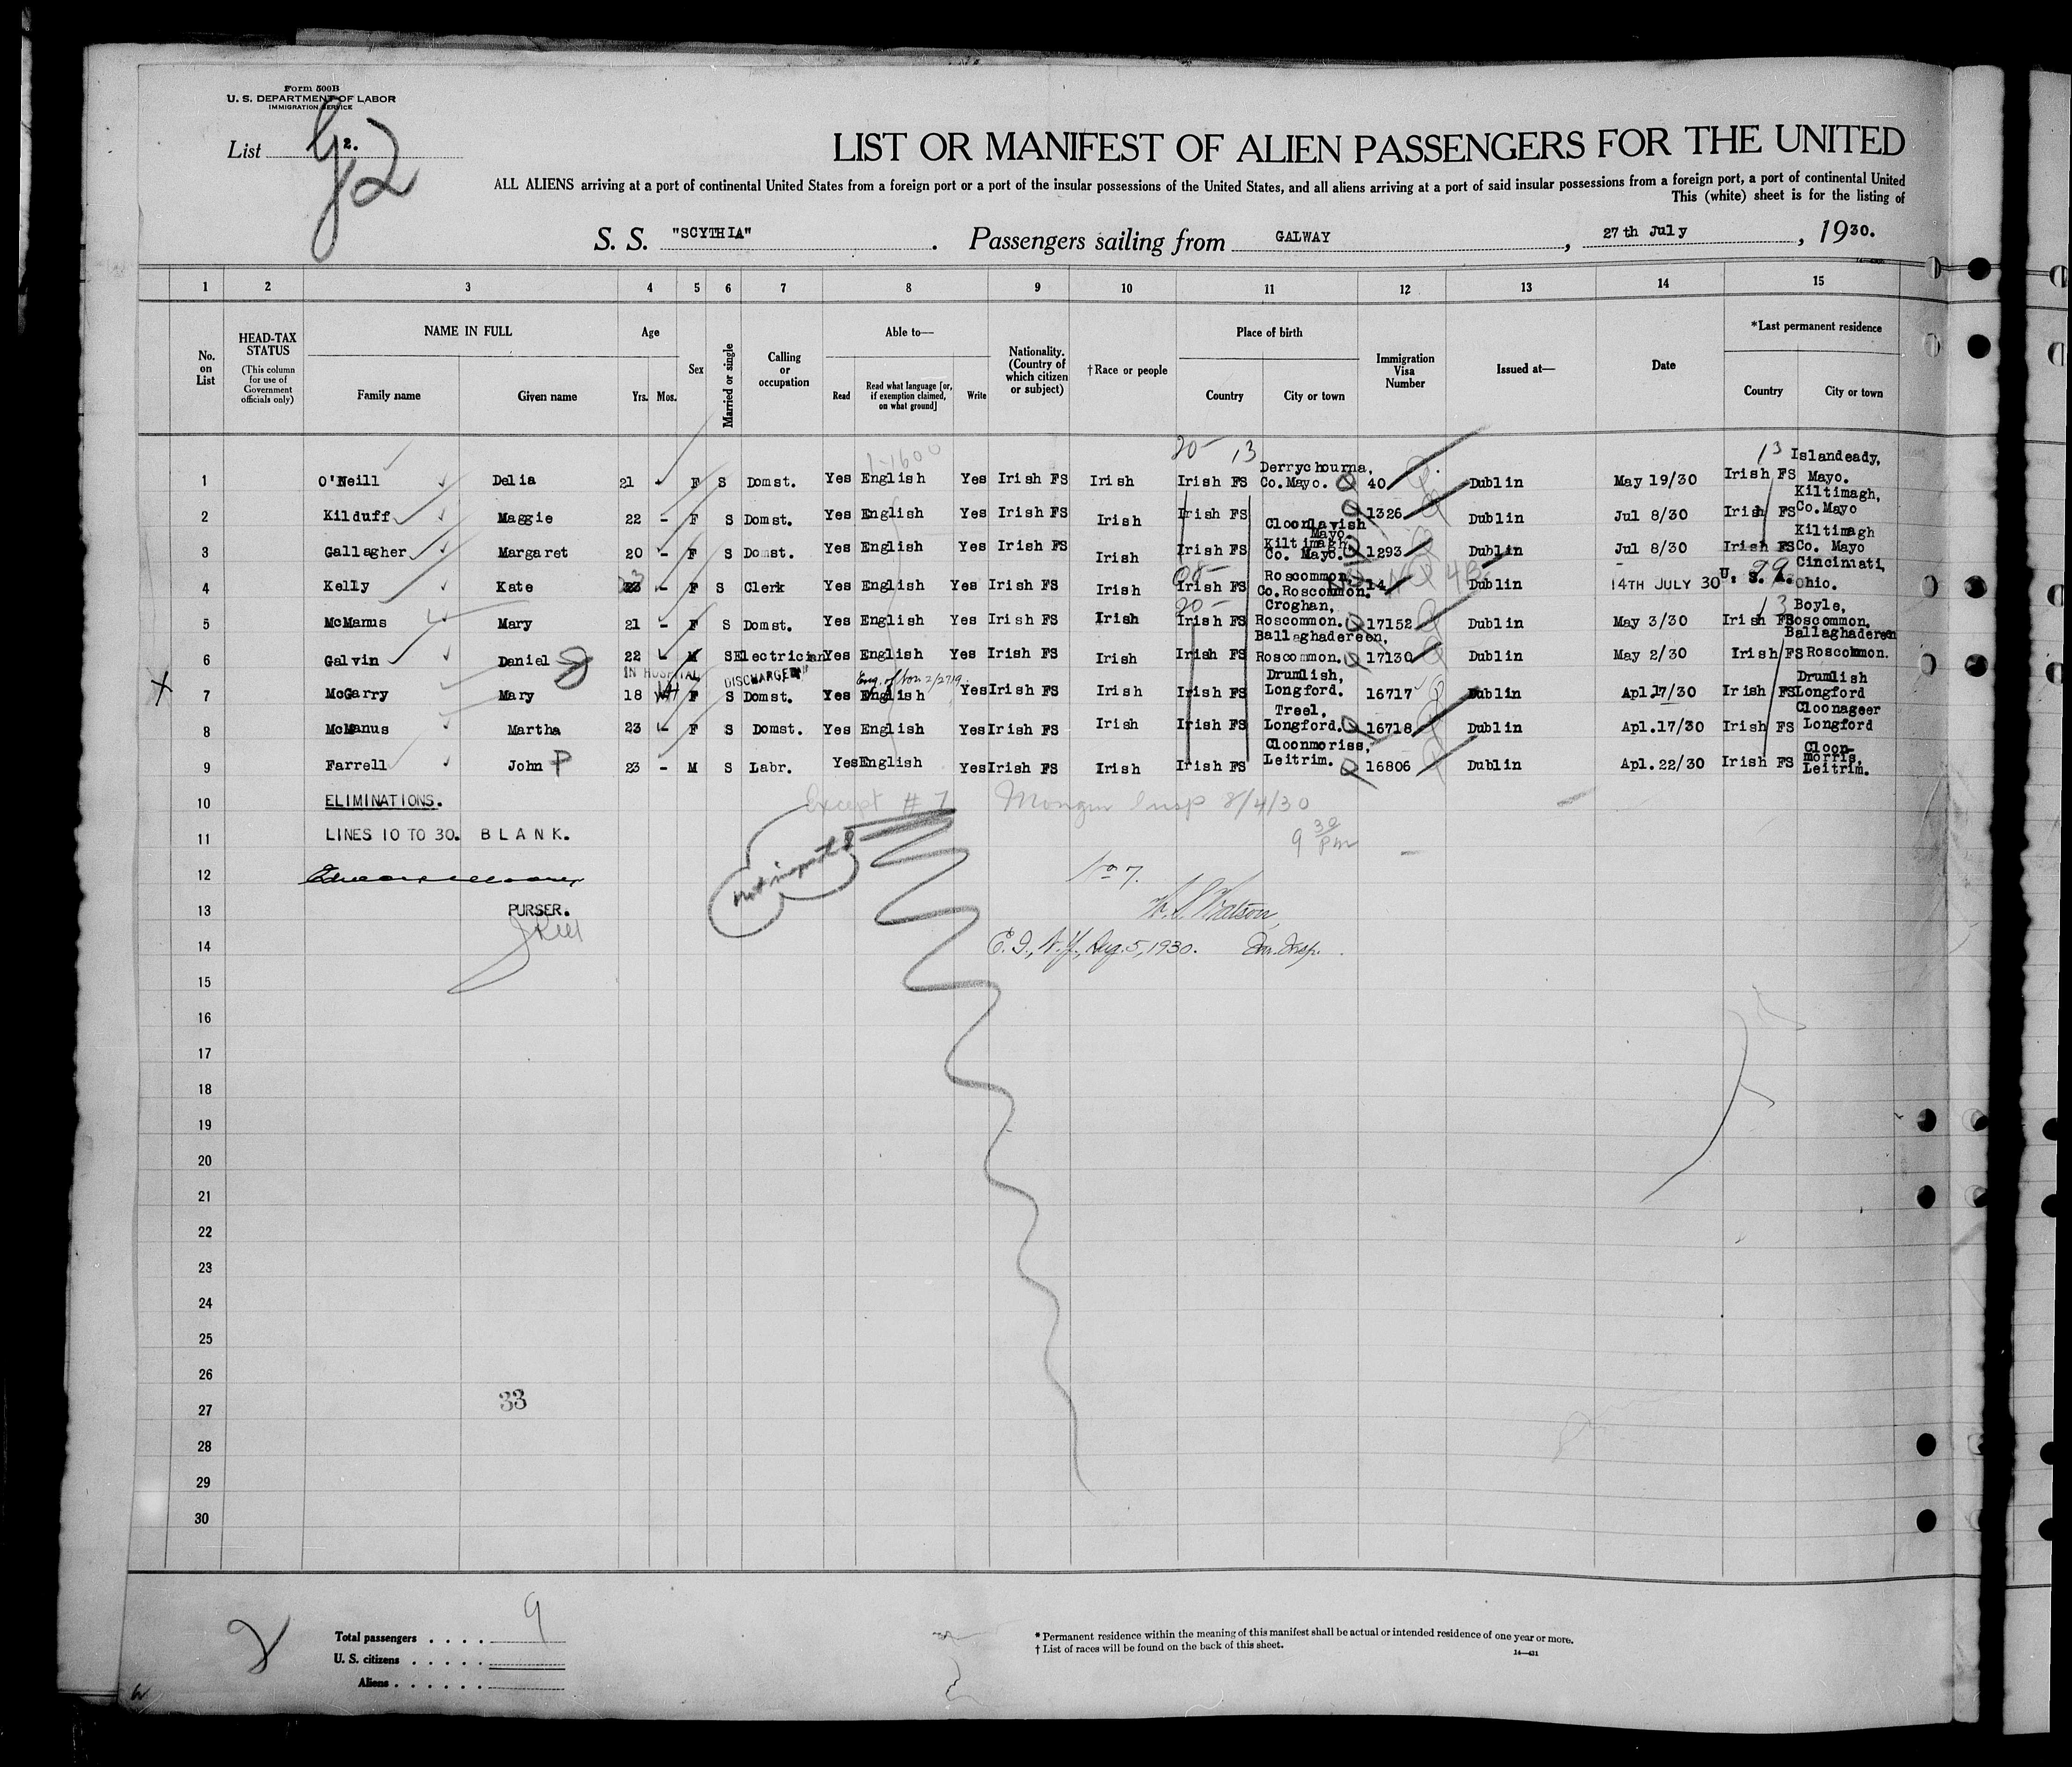 Form 500B
U. S. DEPARTMENT OF LABOR
IMMIGRATION SERVICE
List 2.
g2
LIST OR MANIFEST OF ALIEN PASSENGERS FOR THE UNITED
ALL ALIENS arriving at a port of continental United States from a foreign port or a port of the insular possessions of the United States, and all aliens arriving at a port of said insular possessions from a foreign port, a port of continental United
This (white) sheet is for the listing of
S. S. "SCYTHIA". Passengers sailing from GALWAY, 27th July, 1930.
1 2 3 4 5 6 7 8 9 10 11 12 13 14 15
No. on List
HEAD-TAX STATUS (This column for use of Government officials only)
NAME IN FULL Family name Given name
Age Yrs. Mos.
Sex
Married or single
Calling or occupation
Able to— Read Read what language [or, if exemption claimed, on what ground] Write
Nationality. (Country of which citizen or subject)
†Race or people
Place of birth Country City or town
Immigration Visa Number
Issued at—
Date
*Last permanent residence Country City or town
20- 13 13
1-1600
1 O'Neill Delia 21 - F S Domst. Yes English Yes Irish FS Irish Irish FS Derrychourna, Co.Mayo. 40 Dublin May 19/30 Irish FS Islandeady, Mayo.
2 Kilduff Maggie 22 - F S Domst. Yes English Yes Irish FS Irish Irish FS Cloonlavish Mayo. 1326 Dublin Jul 8/30 Irish FS Kiltimagh, Co.Mayo
3 Gallagher Margaret 20 - F S Domst. Yes English Yes Irish FS Irish Irish FS Kiltimagh, Co. Mayo. 1293 Dublin Jul 8/30 Irish FS Kiltimagh Co. Mayo
4 Kelly Kate 23 - F S Clerk Yes English Yes Irish FS Irish Irish FS Roscommon, Co.Roscommon. 14 Dublin 14TH JULY 30 U. S. A. Cincinati, Ohio.
5 McManus Mary 21 - F S Domst. Yes English Yes Irish FS Irish Irish FS Croghan, Roscommon. 17152 Dublin May 3/30 Irish FS Boyle, Roscommon.
6 Galvin Daniel 22 - M S Electrician Yes English Yes Irish FS Irish Irish FS Ballaghadereen, Roscommon. 17130 Dublin May 2/30 Irish FS Ballaghadereen Roscommon.
IN HOSPITAL DISCHARGED
7 McGarry Mary 18 F S Domst. Yes English Yes Irish FS Irish Irish FS Drumlish, Longford. 16717 Dublin Apl.17/30 Irish FS Drumlish Longford
8 McManus Martha 23 - F S Domst. Yes English Yes Irish FS Irish Irish FS Treel, Longford. 16718 Dublin Apl.17/30 Irish FS Cloonageer Longford
9 Farrell John P 23 - M S Labr. Yes English Yes Irish FS Irish Irish FS Cloonmoriss, Leitrim. 16806 Dublin Apl.22/30 Irish FS Cloon-morris, Leitrim.
10 ELIMINATIONS. Except # 7 Insp 8/4/30
11 LINES 10 TO 30. BLANK. 9 30 pm
12 No 7.
13 PURSER. Watson
14 E. I., N.Y., Aug. 5, 1930. Im. Insp.
15
16
17
18
19
20
21
22
23
24
25
26
27 33
28
29
30
Total passengers . . . . 9
U. S. citizens . . . . .
Aliens . . . . . .
* Permanent residence within the meaning of this manifest shall be actual or intended residence of one year or more.
† List of races will be found on the back of this sheet.
14—431